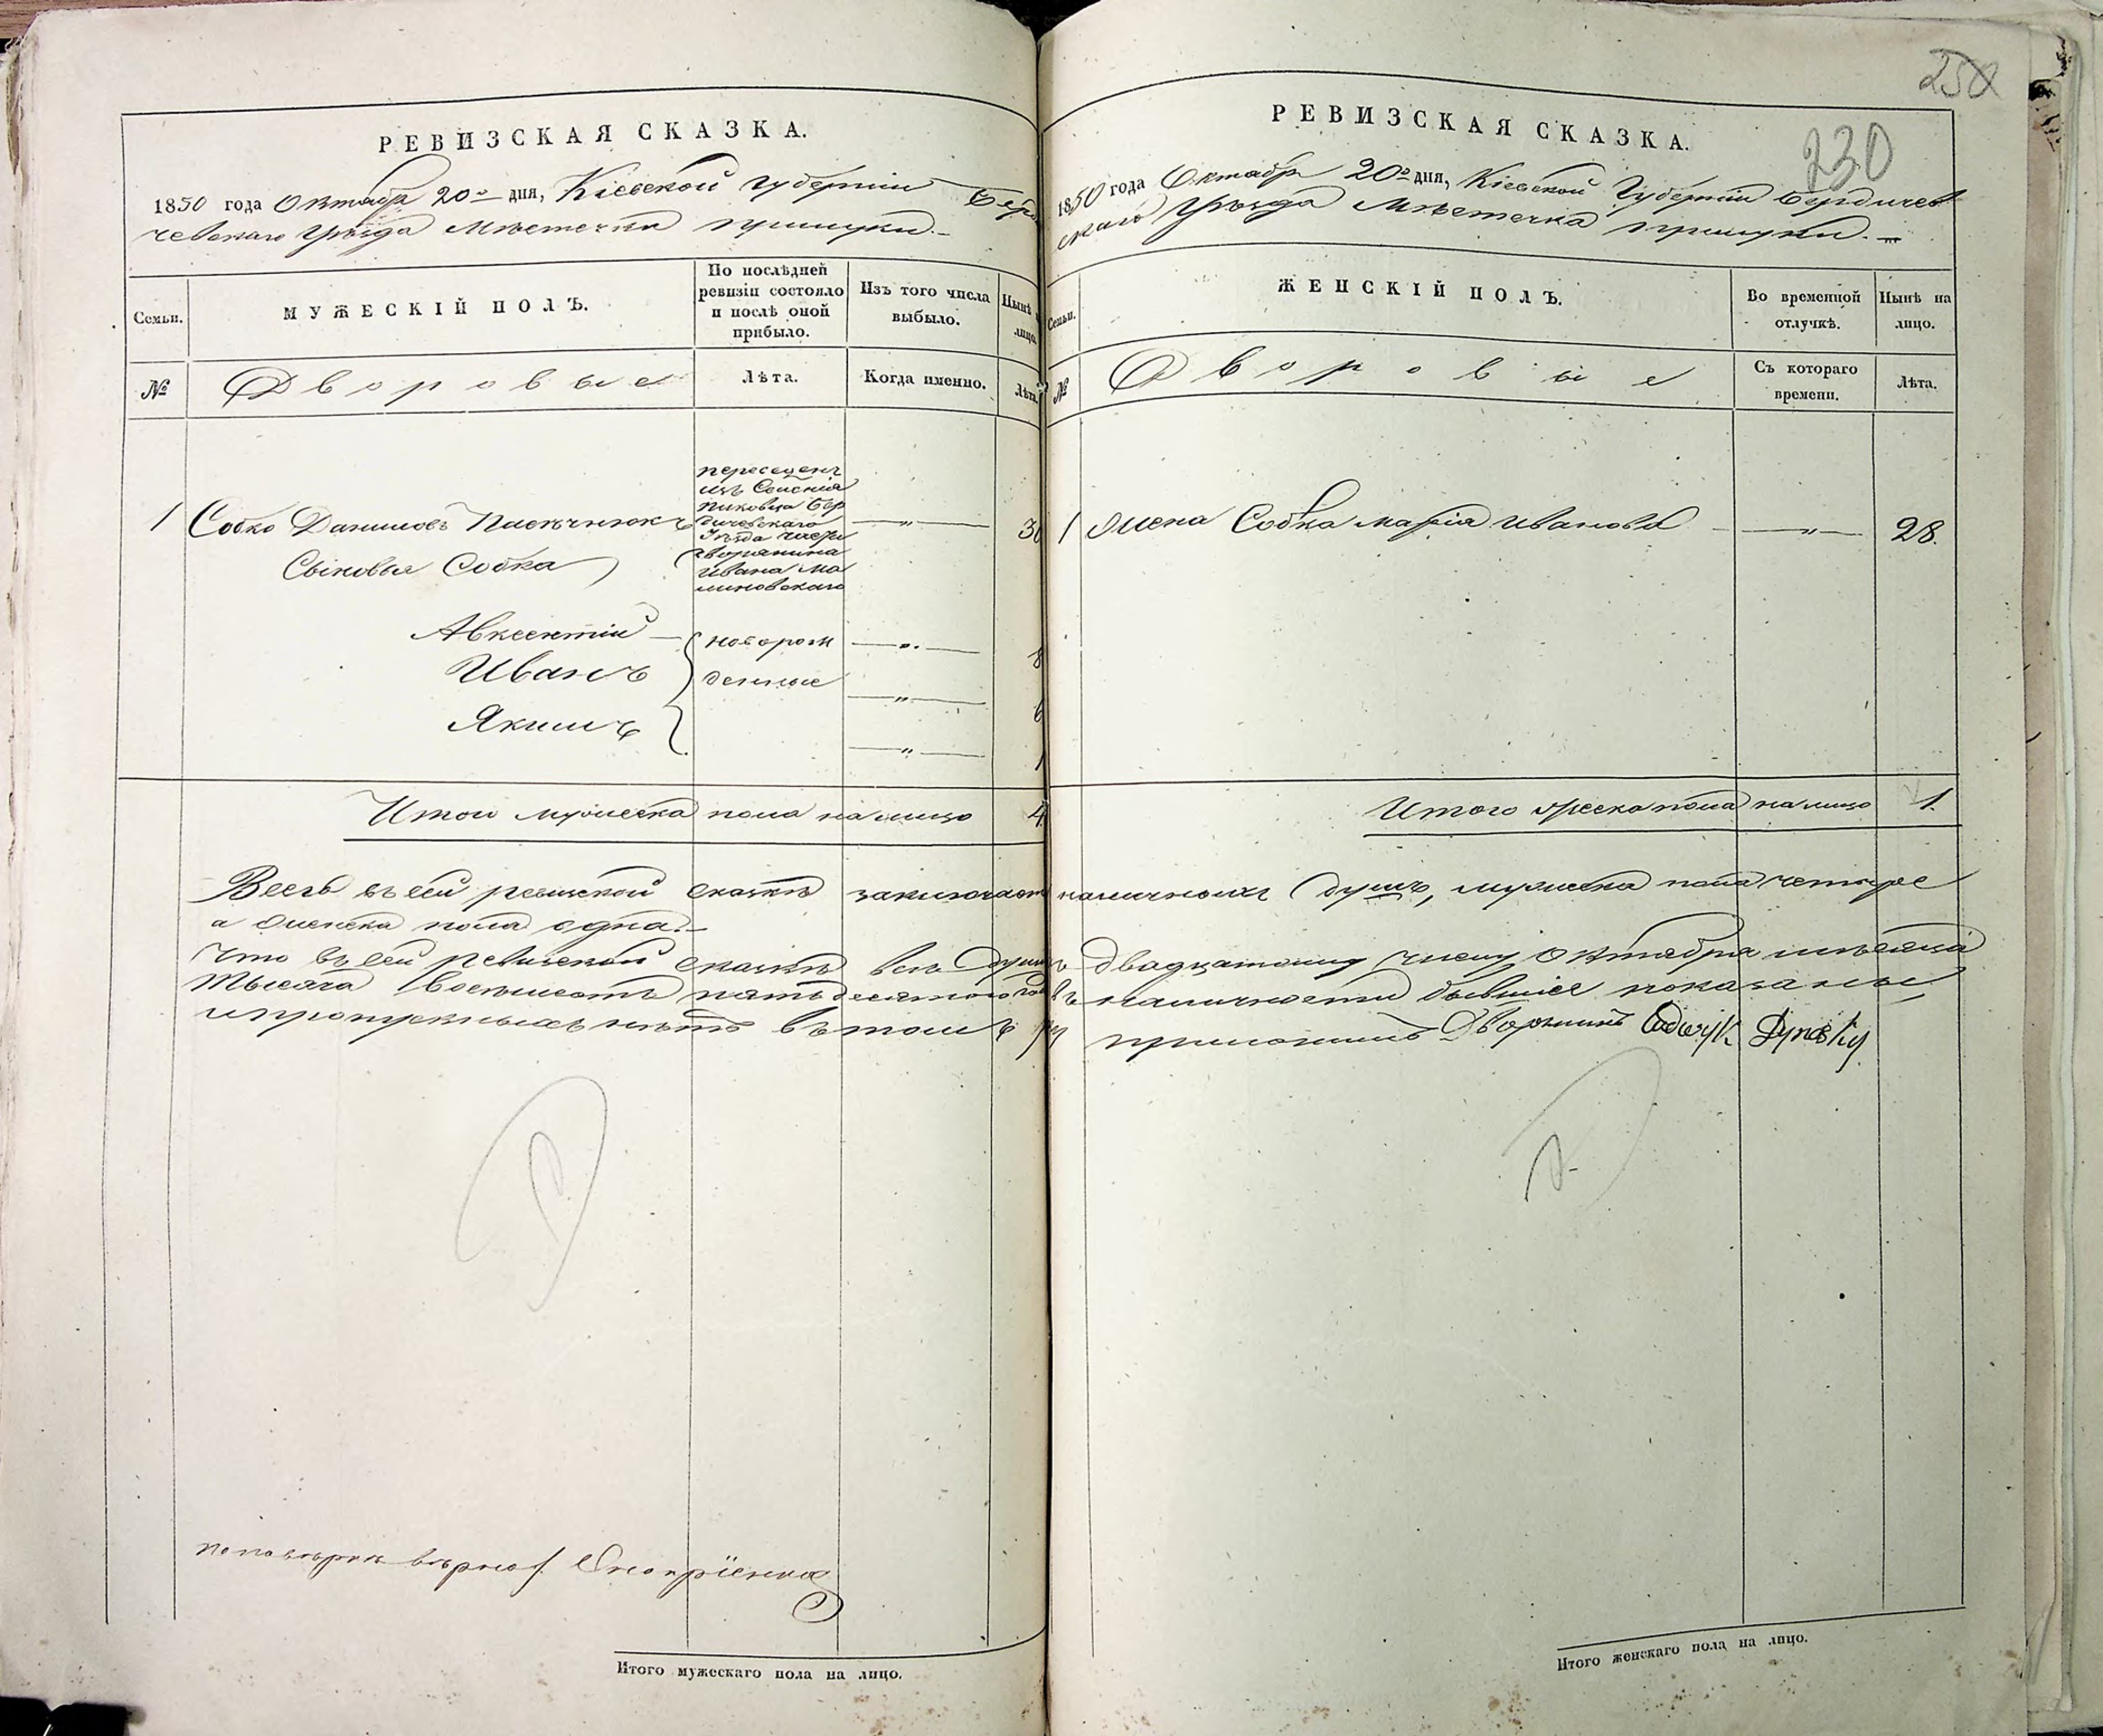 РЕВИЗСКАЯ СКАЗКА.
1850 года Октября 20го дня, Кіевской губерніи Берди
чевскаго Уѣзда Мѣстечка Прилуки.
Семьи.
МУЖЕСКІЙ ПОЛЪ.
По послѣдней ревизіи состояло и послѣ оной прибыло.
Изъ того числа выбыло.
Нынѣ на лицо.
№
Дворовые
Лѣта.
Когда именно.
Лѣта.
1 Собко Даниловъ
Сыновья Собка
изъ
Бер
дичевскаго
Уѣзда
дворянина
Ивана Ма
линовскаго
— " —
30
Авксентій
новорож — " — 8
Иванъ
денные — " — 6
Якимъ
— " — 1
Итого мужеска пола на лицо 4.
Всего въ сей ревизской сказкѣ заключается
а женска пола одна.
Что въ сей ревизской сказкѣ всѣ души
тысяча восемьсотъ пятьдесятого года
и пропускныхъ нѣтъ въ томъ
по повѣркѣ вѣрно
Итого мужескаго пола на лицо.
258
230
РЕВИЗСКАЯ СКАЗКА.
1850 года Октября 20го дня, Кіевской Губерніи Бердичев
скаго Уѣзда Мѣстечка Прилуки.
Семьи.
ЖЕНСКІЙ ПОЛЪ.
Во временной отлучкѣ.
Нынѣ на лицо.
№
Дворовые
Съ котораго времени.
Лѣта.
1 Жена Собка Марія Иванова — " — 28.
Итого женска пола на лицо 1.
наличныхъ душъ, мужеска пола четыре
двадцатому числу Октября мѣсяца
въ наличности бывшіе показаны,
приложилъ Дворянинъ
Итого женскаго пола на лицо.